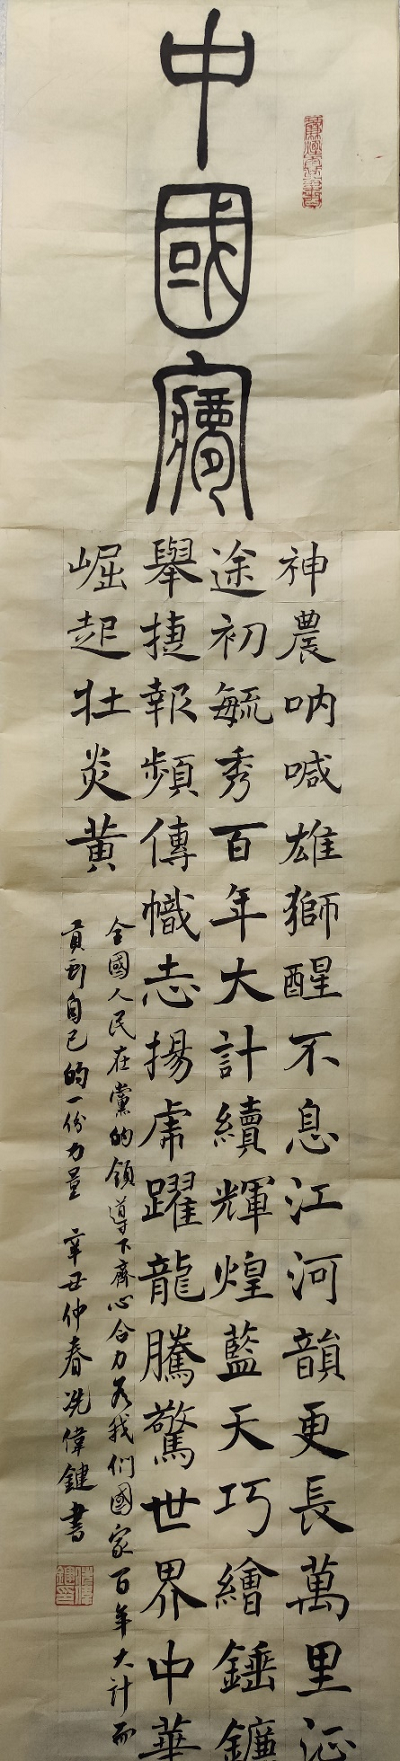 中國夢
神農吶喊雄獅醒不息江河韻更長萬里征
途初毓秀百年大計續輝煌藍天巧繪錘鐮
舉捷報頻傳幟志揚虎躍龍騰驚世界中華
崛起壯炎黃
全國人民在黨的領導下齊心合力為我们國家百年大計而
貢自己的一份力量 辛丑仲春冼偉鍵書